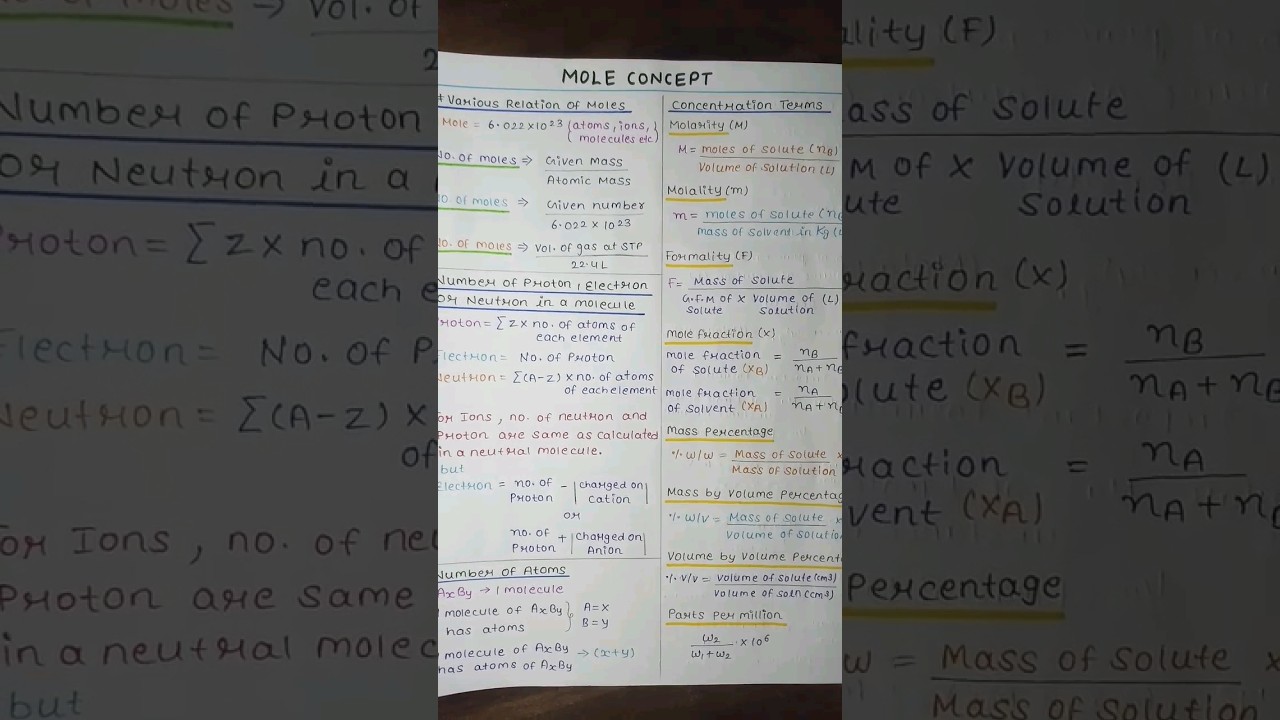 MOLE CONCEPT
* Various Relation of Moles
Mole = 6.022 × 10²³ {atoms, ions, molecules etc}
No. of moles ⇒ Given Mass / Atomic Mass
No. of moles ⇒ Given number / 6.022 × 10²³
No. of moles ⇒ Vol. of gas at STP / 22.4L
Number of Proton, Electron
or Neutron in a molecule
Proton = ∑ Z × no. of atoms of
each element
Electron = No. of Proton
Neutron = ∑(A-Z) × no. of atoms
of each element
For Ions, no. of neutron and
Proton are same as calculated
in a neutral molecule.
but
Electron = no. of Proton - |charged on cation|
or
no. of Proton + |charged on Anion|
Number of Atoms
AxBy → 1 molecule
1 molecule of AxBy has atoms } A = x B = y
1 molecule of AxBy
has atoms of AxBy → (x+y)
Concentration Terms
Molarity (M)
M = moles of solute (nB) / Volume of solution (L)
Molality (m)
m = moles of solute (n / mass of solvent in Kg
Formality (F)
F = Mass of solute / G.F.M of solute × Volume of solution (L)
mole fraction (x)
mole fraction of solute (xB) = nB / nA + nB
mole fraction of solvent (xA) = nA / nA + n
Mass Percentage
% w/w = Mass of solute / Mass of solution ×
Mass by Volume Percentag
% w/v = Mass of solute / Volume of solutio ×
Volume by Volume Percent
% v/v = Volume of solute (cm3) / Volume of soln (cm3)
Parts per million
w₂ / w₁ + w₂ × 10⁶